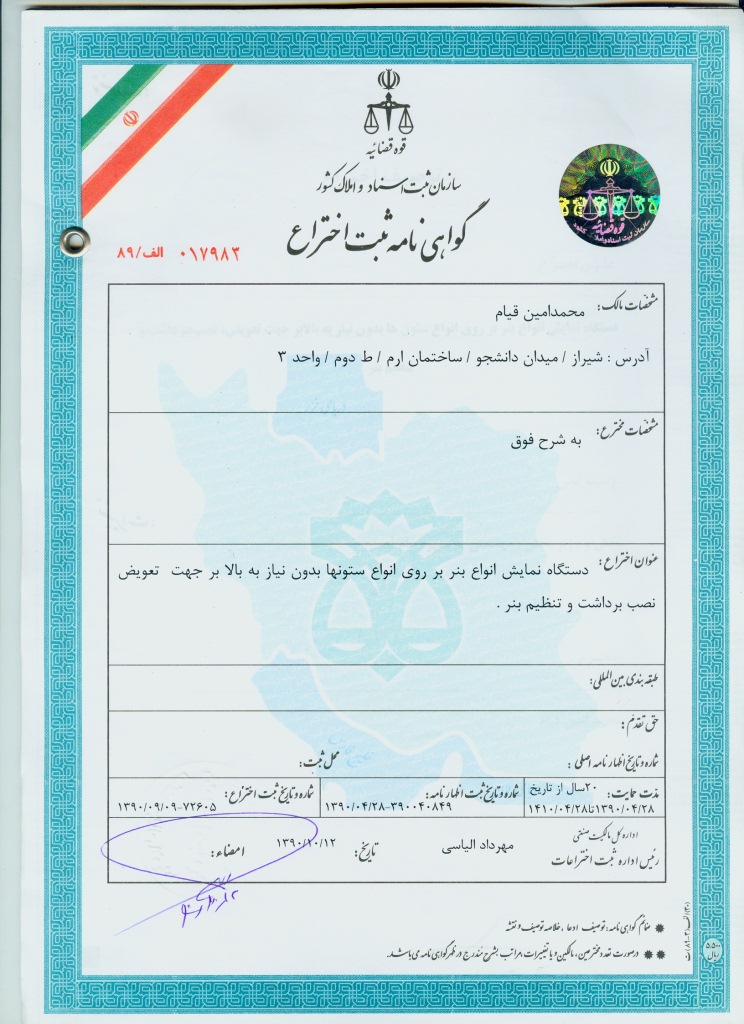 قوه قضائیه
سازمان ثبت اسناد و املاک کشور
گواهی نامه ثبت اختراع
۰۱۷۹۸۳ الف/۸۹
قوه قضائیه
سازمان ثبت اسناد و املاک کشور
مشخصات مالک: محمدامین قیام
آدرس : شیراز / میدان دانشجو / ساختمان ارم / ط دوم / واحد ۳
مشخصات مخترع: به شرح فوق
عنوان اختراع: دستگاه نمایش انواع بنر بر روی انواع ستونها بدون نیاز به بالا بر جهت تعویض
نصب برداشت و تنظیم بنر .
طبقه بندی بین المللی:
حق تقدم:
شماره و تاریخ اظهارنامه اصلی : محل ثبت:
مدت حمایت: ۲۰سال از تاریخ
۱۳۹۰/۰۴/۲۸تا۱۴۱۰/۰۴/۲۸
شماره و تاریخ ثبت اظهارنامه:
۱۳۹۰/۰۴/۲۸-۳۹۰۰۴۰۸۴۹
شماره و تاریخ ثبت اختراع:
۱۳۹۰/۰۹/۰۹-۷۲۶۰۵
اداره کل مالکیت صنعتی
رئیس اداره ثبت اختراعات
مهرداد الیاسی
تاریخ: ۱۳۹۰/۱۰/۱۲
امضاء:
ضمائم گواهی نامه: توصیف ادعا، خلاصه توصیف و نقشه
در صورت تعدد مخترعین، مالکین و یا تغییرات، مراتب بشرح مندرج در ظهر گواهی نامه می باشد.
۵۵۰۰
ریال